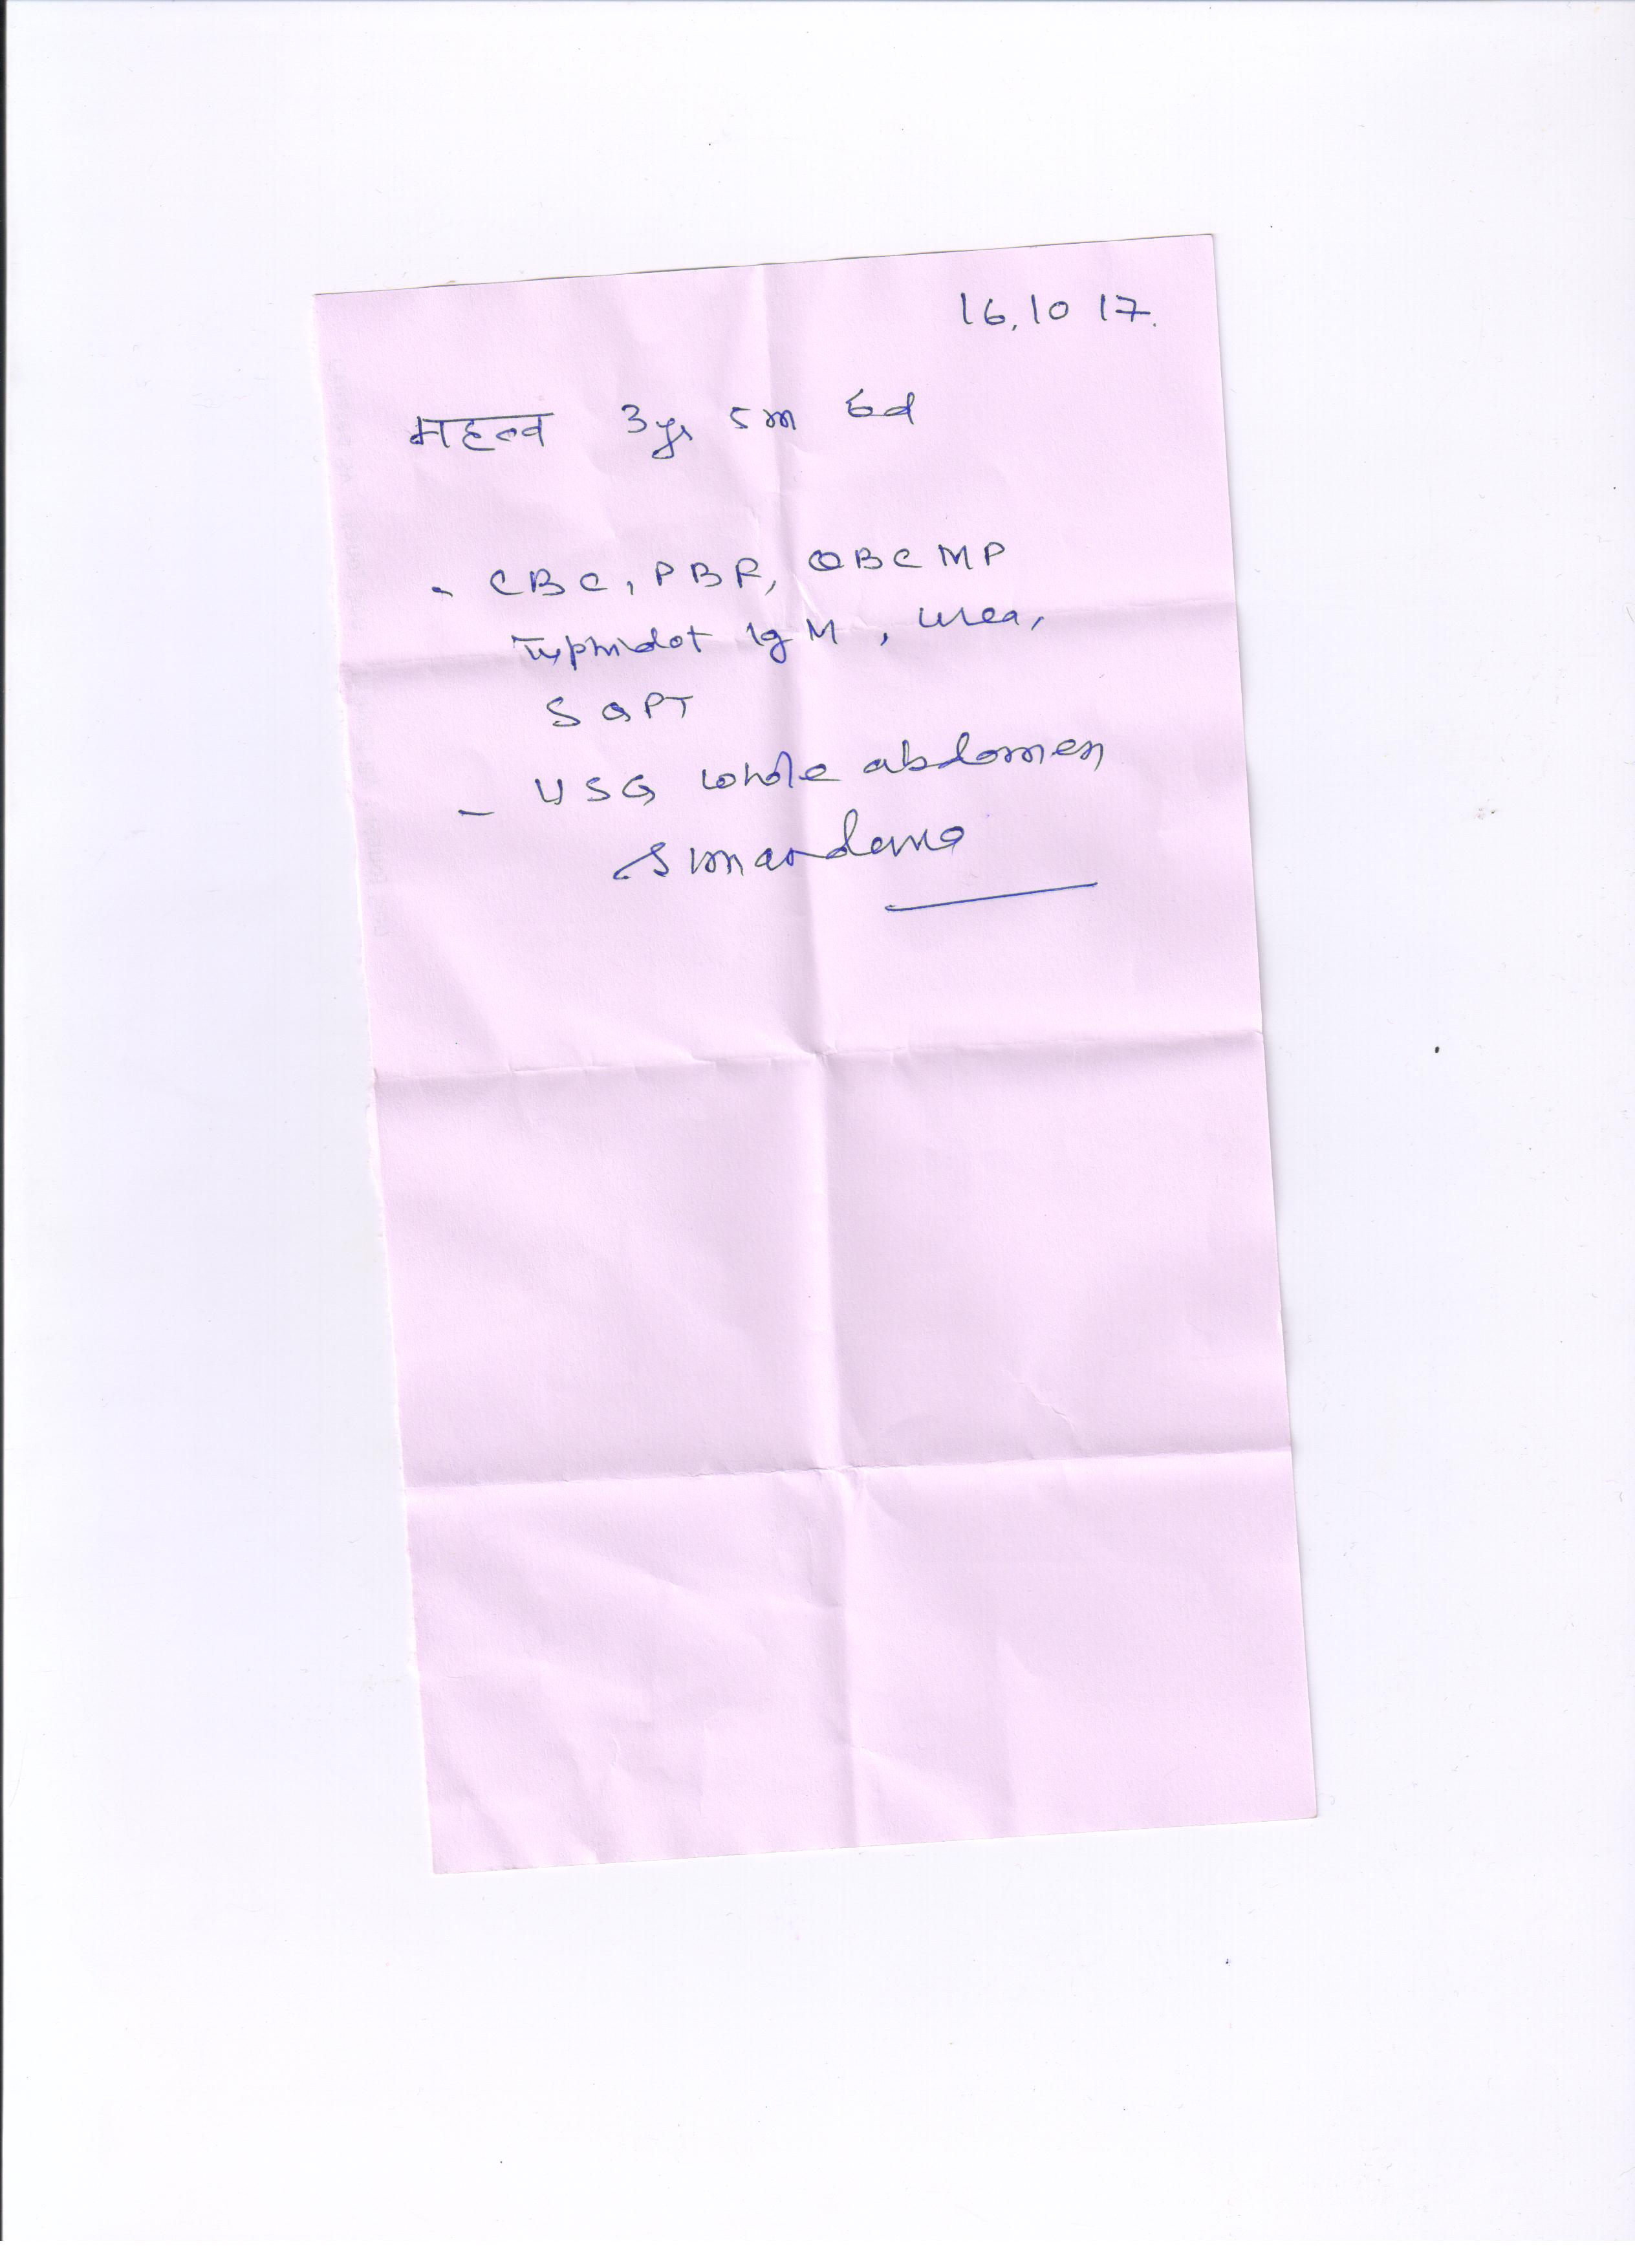 16.10 17.
महत्व 3yr 5m 6d
- CBC, PBF, QBC MP
Typhidot IgM, urea,
SGPT
- USG whole abdomen